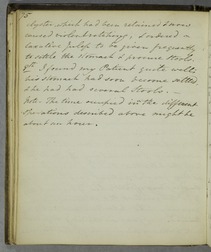 75
which had been retained & now
caused violent retching; I ordered a
laxative julep to be given frequently
to settle the stomach & procure stools.
9th I found my Patient quite well:
his stomach had soon become settled
& he had had several stools. —
Note. The time occupied in the different
operations described above might be
about an hour.